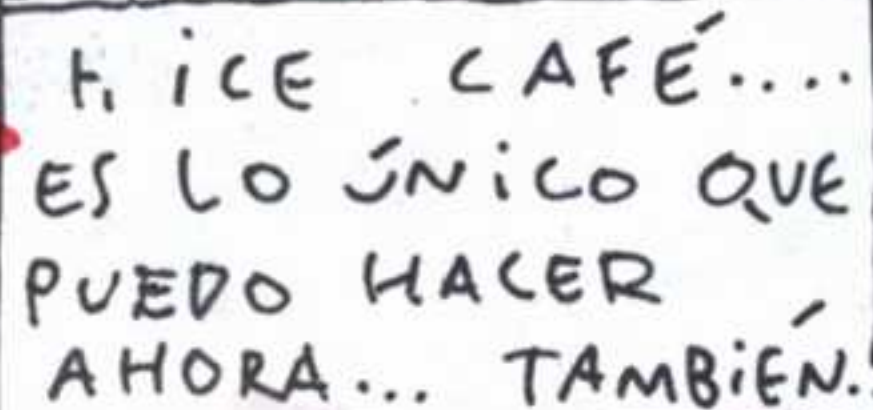 HiCE CAFÉ....
ES LO ÚNiCO QUE
PUEDO HACER
AHORA... TAMBiÉN.